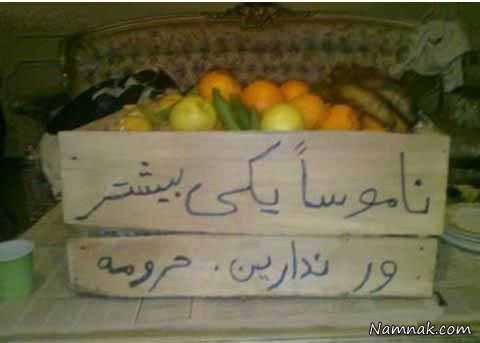 ناموساً یکی بیشتر
ور ندارین. حرومه
Namnak.com